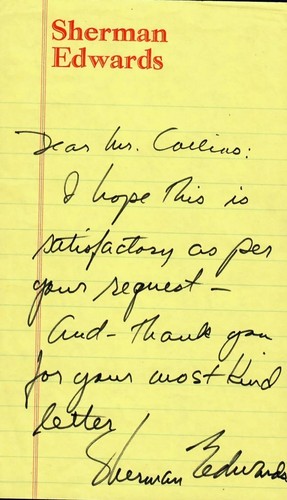 Sherman
Edwards
Dear Mr. Collins:
I hope this is
satisfactory as per
your request –
And – thank you
for your most kind
letter
Sherman Edwards